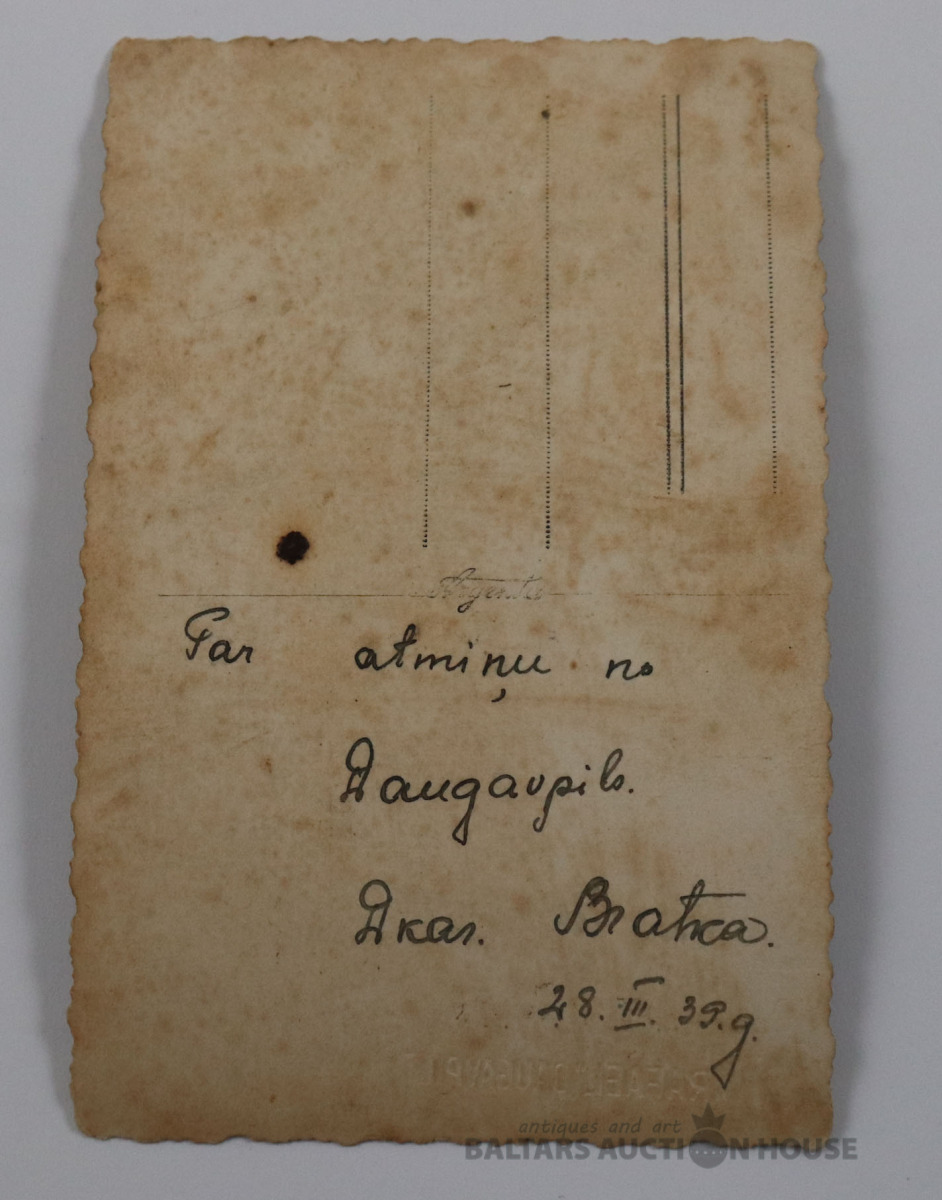 Par atmiņu no
Daugavpils.
Dkar. Bratka.
28. III. 39. g.
antiques and art
BALTARS AUCTION HOUSE